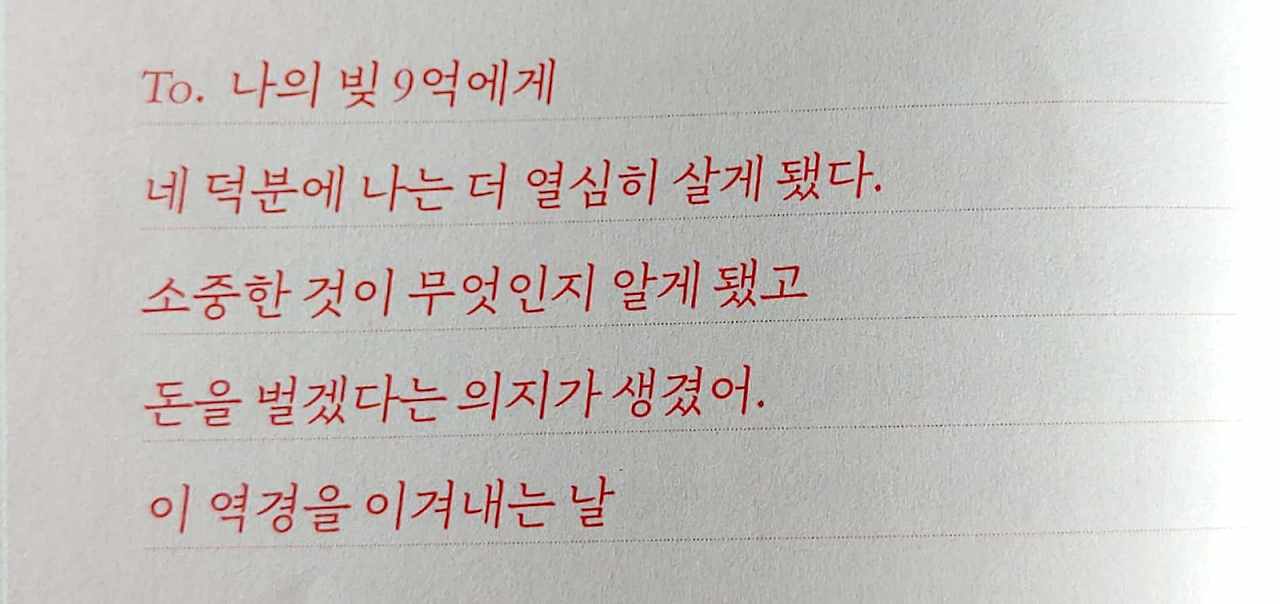 To. 나의 빚 9억에게
네 덕분에 나는 더 열심히 살게 됐다.
소중한 것이 무엇인지 알게 됐고
돈을 벌겠다는 의지가 생겼어.
이 역경을 이겨내는 날